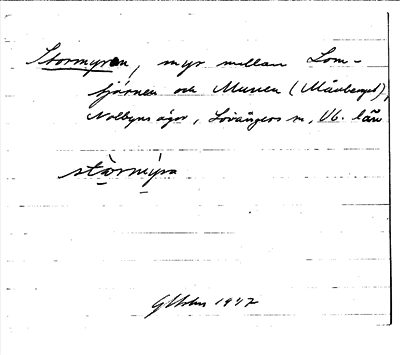 Stormyren, myr mellan Lom-
tjärnen och Muren (Månberget),
Nolbyns ägor, Lövångers sn, Vb. län
stòrmýra
GHolm 1947